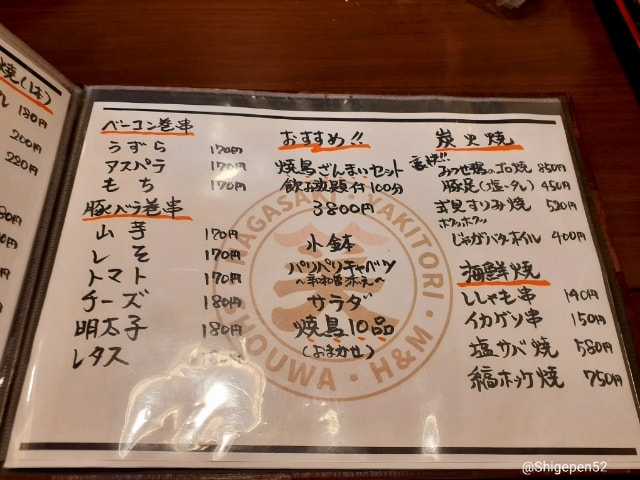 焼(1本)
180円
200円
220円
ベーコン巻串
うずら 170円
アスパラ 170円
もち 170円
豚バラ巻串
山芋 170円
しそ 170円
トマト 170円
チーズ 180円
明太子 180円
レタス
おすすめ!!
焼鳥ざんまいセット
飲み放題付100分
3800円
小鉢
パリパリキャベツ
サラダ
焼鳥10品
(おまかせ)
炭火焼
豪快!!
みつせ鶏のゴロ焼 850円
豚足(塩・タレ) 450円
弐見すりみ焼 520円
ホクッホクッ
じゃがバタホイル 400円
海鮮焼
ししゃも串 140円
イカゲソ串 150円
塩サバ焼 580円
縞ホッケ焼 750円
NAGASAKI・YAKITORI・
SHOUWA・H&M・
@Shigepen52